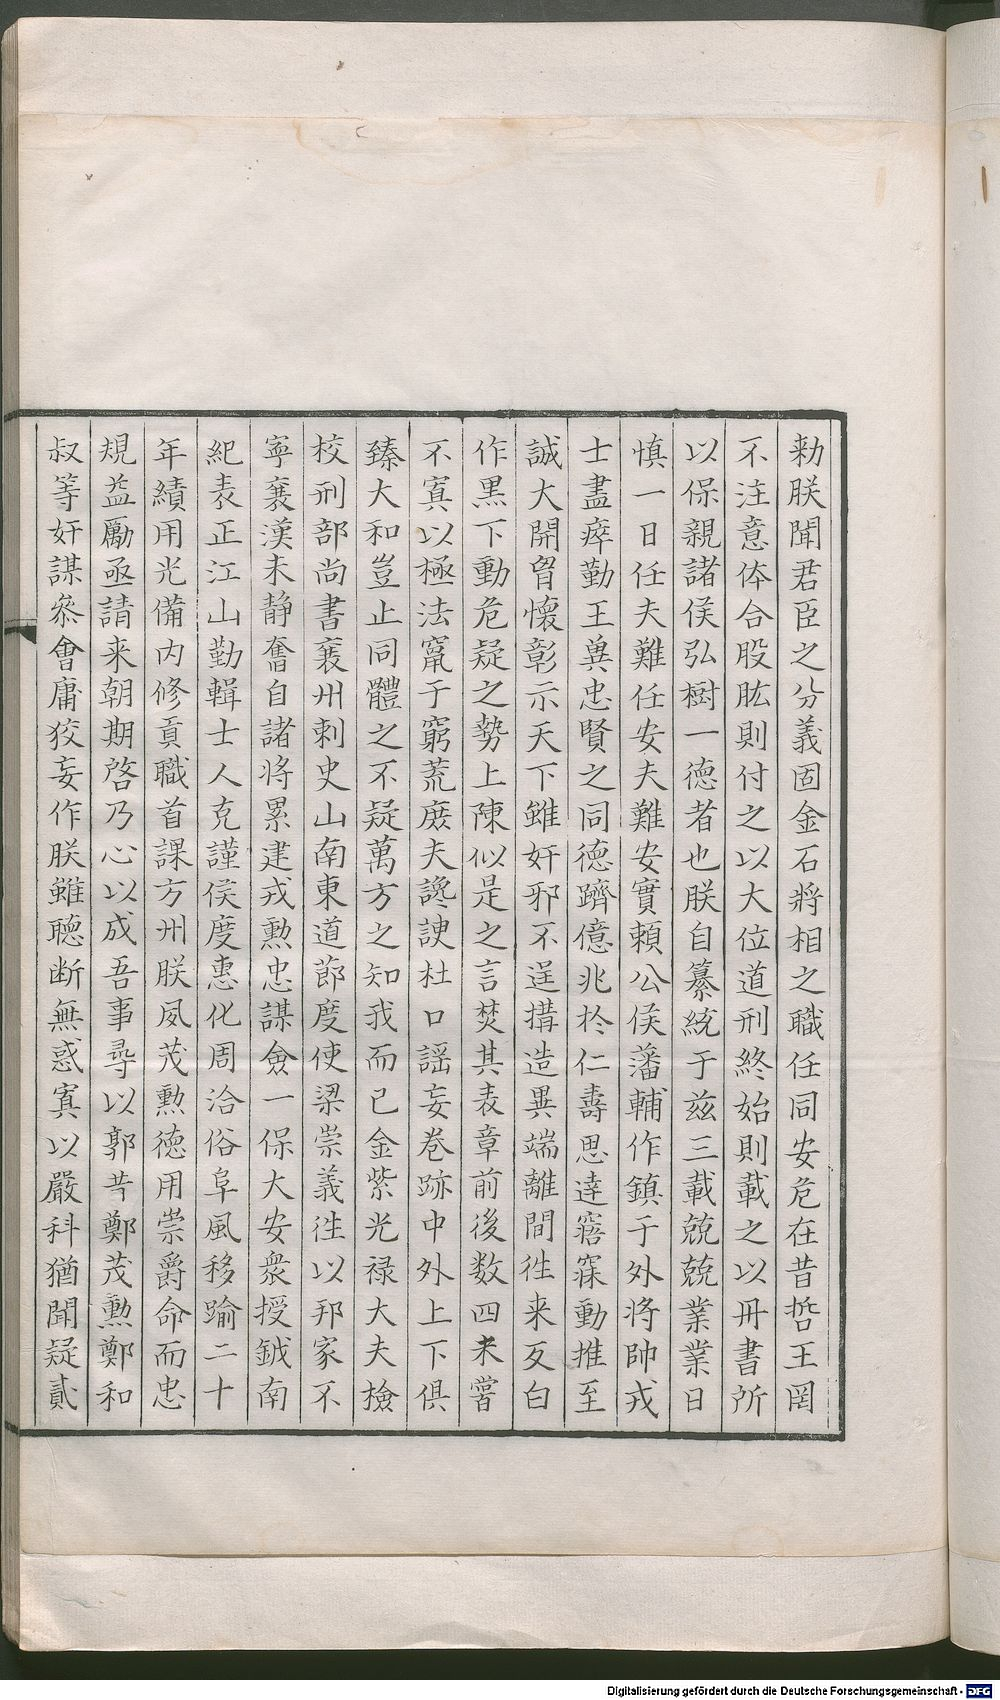 勑朕聞君臣之分義固金石將相之職任同安危在昔哲王罔
不注意体合股肱則付之以大位道刑終始則載之以冊書所
以保親諸侯弘樹一德者也朕自纂統于兹三載兢兢業業日
慎一日任夫難任安夫難安實賴公侯藩輔作鎮于外将帥戎
士盡瘁勤王兾忠賢之同德躋億兆於仁壽思達寤寐動推至
誠大開胷懷彰示天下雖奸邪不逞搆造異端離間徃来反白
作黒下動危疑之勢上陳似是之言焚其表章前後数四未嘗
不寘以極法竄于窮荒庶夫讒諛杜口謡妄卷跡中外上下俱
臻大和豈止同體之不疑萬方之知我而已金紫光禄大夫檢
校刑部尚書襄州刺史山南東道莭度使梁崇義徃以邦家不
寧襄漢未静奮自諸将累建戎勲忠謀僉一保大安衆授鉞南
紀表正江山勤輯士人克謹侯度惠化周洽俗阜風移踰二十
年績用光備内修貢職首課方州朕夙茂勲德用崇爵命而忠
規益勵亟請来朝期啓乃心以成吾事尋以郭昔鄭茂勲鄭和
叔等奸謀叅會庸狡妄作朕雖聰断無惑寘以嚴科猶聞疑貳
Digitalisierung gefördert durch die Deutsche Forschungsgemeinschaft - DFG